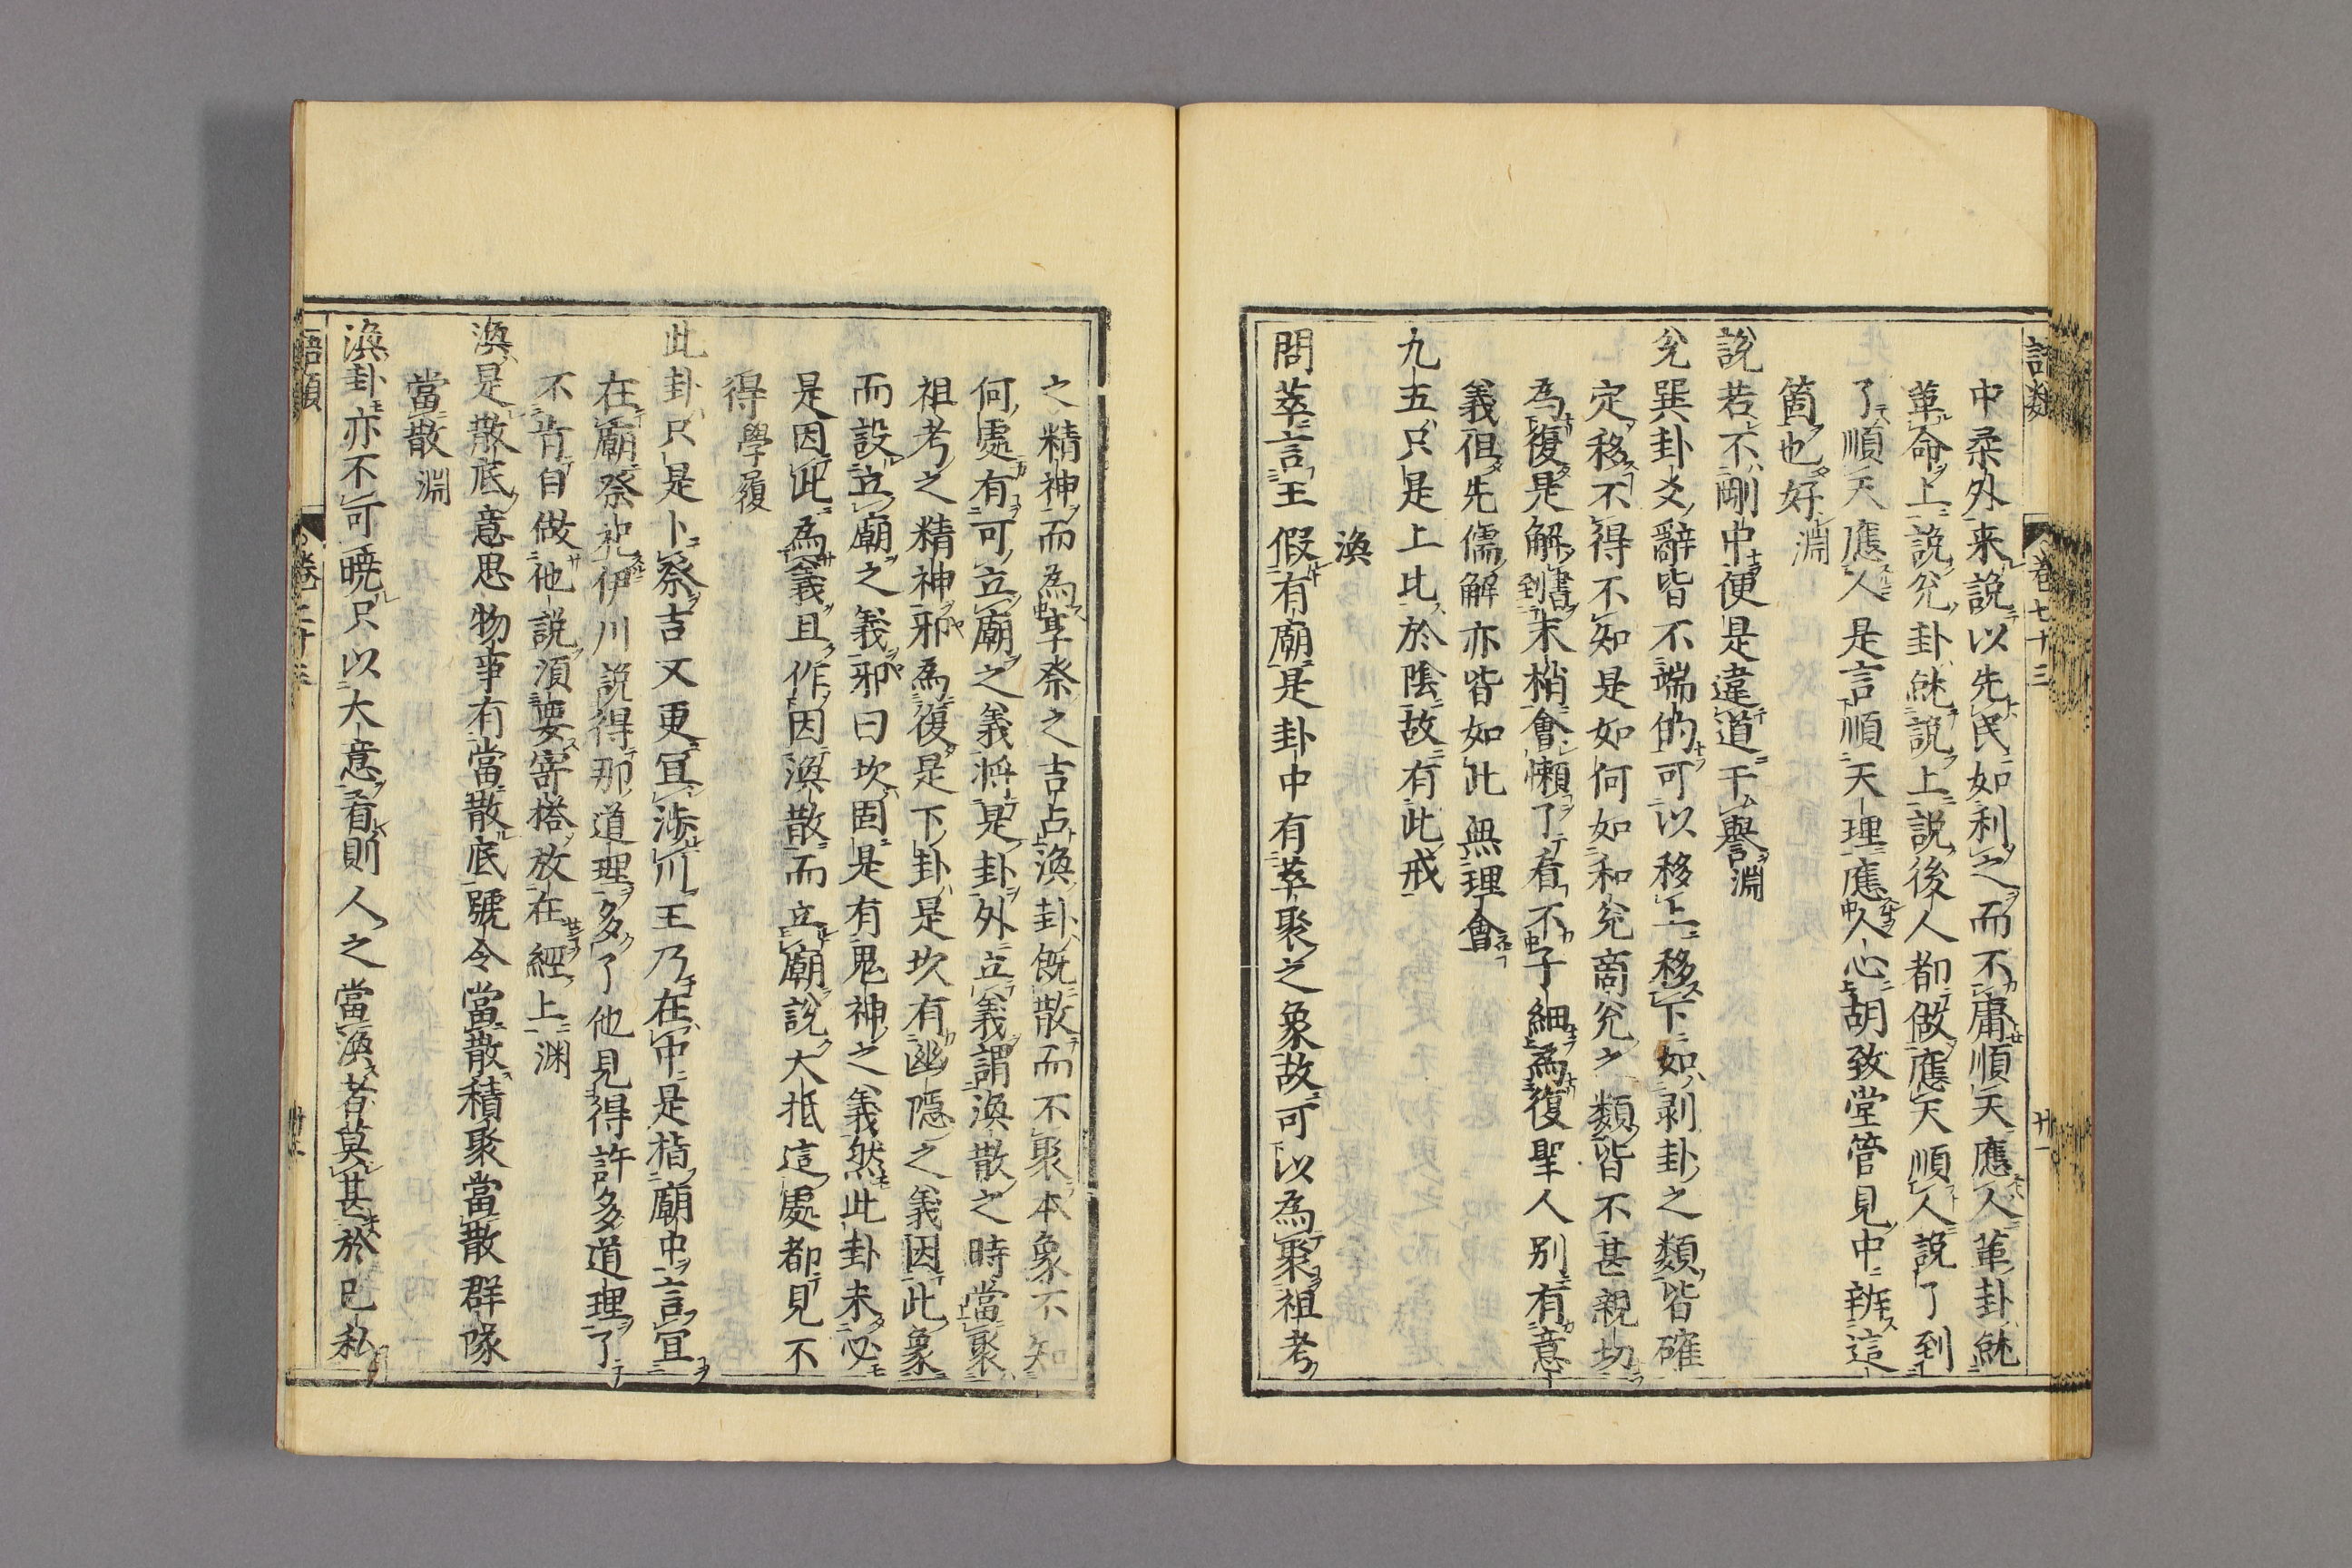 語類 卷七十三 廿一
中柔外来說以先民如利之而不庸順天應人革卦就
革命上說兊卦就說上說後人都做應天順人說了到
了順天應人是言順天理應人心胡致堂管見中辨這
箇也好淵
說若不剛中便是違道干譽淵
兊巽卦爻辭皆不端的可以移上移下如剥卦之類皆確
定移不得不知是如何如和兊商兊之類皆不甚親切
為復是解書到末梢會懶了看不子細為復聖人別有意
義但先儒解亦皆如此無理會
九五只是上比於陰故有此戒
渙
問萃言王假有廟是卦中有萃聚之象故可以為聚祖考
之精神而為享祭之吉占渙卦既散而不聚本象不知
何處有可立廟之義將是卦外立義謂渙散之時當聚
祖考之精神邪為復是下卦是坎有幽隱之義因此象
而設立廟之義邪曰坎固是有鬼神之義然此卦未必
是因此為義且作因渙散而立廟說大抵這處都見不
得學履
此卦只是卜祭吉又更宜涉川王乃在中是指廟中言宜
在廟祭祀伊川說得那道理多了他見得許多道理了
不肯自做他說湏要寄搭放在經上渊
渙是散底意思物事有當散底號令當散積聚當散群隊
當散淵
渙卦亦不可曉只以大意看則人之當渙者莫甚於己私
語類 卷七十三